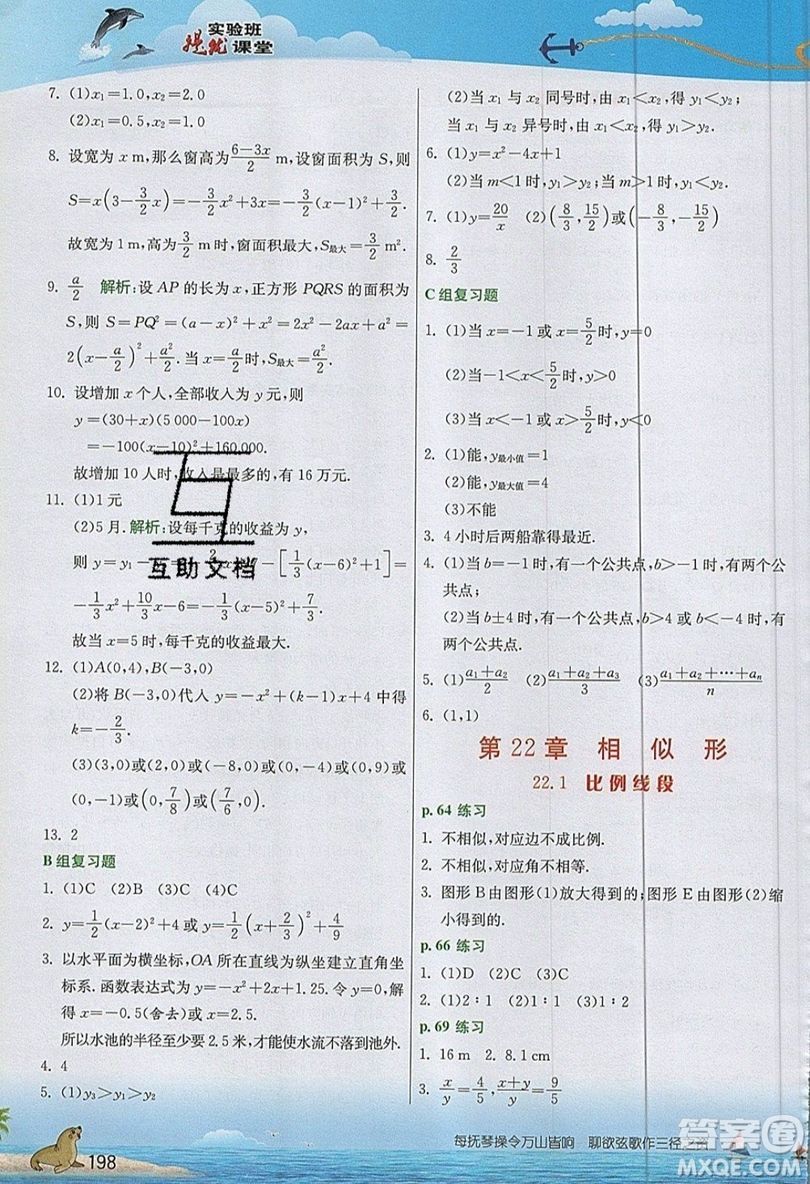 实验班
提优课堂
7. (1)x₁=1.0, x₂=2.0
(2)x₁=0.5, x₂=1.0
8. 设宽为 x m,那么窗高为(6-3x)/2 m,设窗面积为 S,则
S=x(3-3/2 x)=-3/2 x²+3x=-3/2(x-1)²+3/2.
故宽为 1 m,高为 3/2 m 时,窗面积最大,S最大=3/2 m².
9. a/2 解析:设 AP 的长为 x,正方形 PQRS 的面积为
S,则 S=PQ²=(a-x)²+x²=2x²-2ax+a²=
2(x-a/2)²+a²/2.当 x=a/2时,S最大=a²/2.
10. 设增加 x 个人,全部收入为 y 元,则
y=(30+x)(5 000-100x)
=-100(x-10)²+160,000.
故增加 10 人时,收入是最多的,有 16 万元.
11. (1)1 元
(2)5 月. 解析:设每千克的收益为 y,
则 y=y₁-[1/3(x-6)²+1]=
-1/3 x²+10/3 x-6=-1/3(x-5)²+7/3.
故当 x=5 时,每千克的收益最大.
12. (1)A(0,4),B(-3,0)
(2)将 B(-3,0)代入 y=-x²+(k-1)x+4 中得
k=-2/3.
(3)(3,0)或(2,0)或(-8,0)或(0,-4)或(0,9)
或(0,-1)或(0,7/8)或(7/6,0).
13. 2
B 组复习题
1. (1)C (2)B (3)C (4)C
2. y=1/2(x-2)²+4 或 y=1/2(x+2/3)²+4/9
3. 以水平面为横坐标,OA 所在直线为纵坐建立直角坐标
系. 函数表达式为 y=-x²+2x+1.25. 令 y=0,
得 x=-0.5(舍去)或 x=2.5,
所以水池的半径至少要 2.5 米,才能使水流不落到池外.
4. 4
5. (1)y₃>y₁>y₂
(2)当 x₁ 与 x₂ 同号时,由 x₁<x₂,得 y₁<y₂;
当 x₁ 与 x₂ 异号时,由 x₁<x₂,得 y₁>y₂.
6. (1)y=x²-4x+1
(2)当 m<1 时,y₁>y₂;
7. (1)y=20/x (2)(8/3,15/2)或(-8/3,-15/2)
8. 2/3
C 组复习题
1. (1)当 x=-1 或 x=5/2时,y=0
(2)当-1<x<5/2时,y<0
(3)当 x<-1 或 x>5/2时,y>0
2. (1)能,y最小值=1
(2)能,y最大值=4
(3)不能
3. 4 小时后两船靠得最近.
4. (1)当 b=-1 时,有一个公共点,b>-1 时,有两个公
共点;
(2)当 b±4 时,有一个公共点,b>4 或 b<-4 时,有
两个公共点.
5. (1)(a₁+a₂)/2 (2)(a₁+a₂+a₃)/3 (3)(a₁+a₂+⋯+aₙ)/n
6. (1,1)
第 22 章 相 似 形
22.1 比例线段
p. 64 练习
1. 不相似,对应边不成比例.
2. 不相似,对应角不相等.
3. 图形 B 由图形(1)放大得到的;图形 E 由图形(2)缩
小得到的.
p. 66 练习
1. (1)D (2)C (3)C
2. (1)2∶1 (2)1∶2
p. 69 练习
1. 16 m 2. 8.1 cm
3. x/y=4/5, (x+y)/y=9/5
互助文档
每抚琴操令万山皆响 聊欲弦歌作三径之
198
答案圈
MXQE.COM